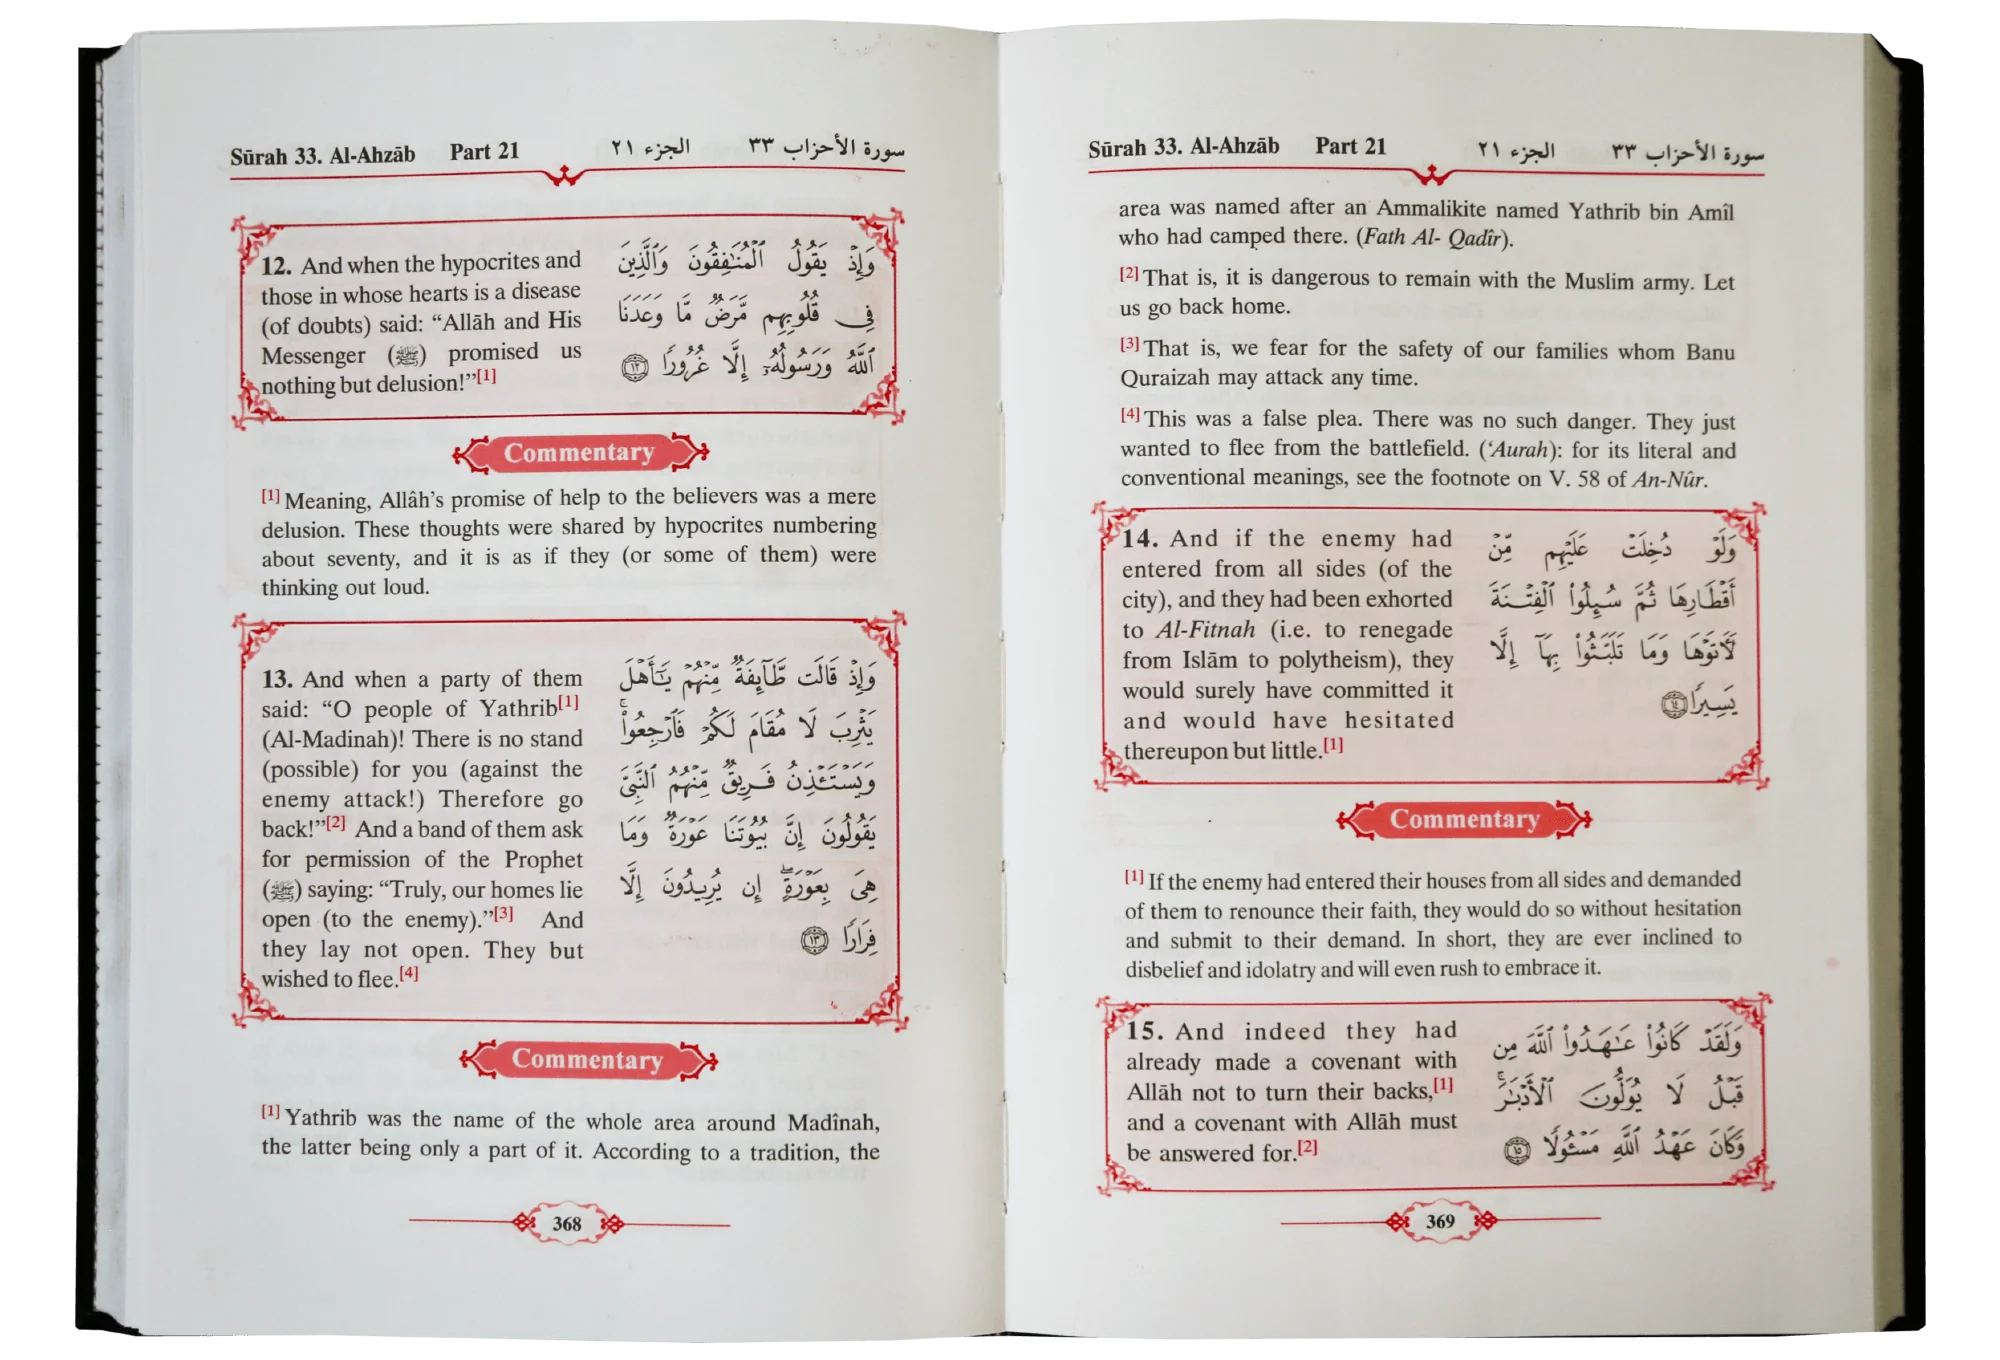 Sūrah 33. Al-Ahzāb Part 21 الجزء ٢١ سورة الأحزاب ٣٣
12. And when the hypocrites and
those in whose hearts is a disease
(of doubts) said: “Allāh and His
Messenger (ﷺ) promised us
nothing but delusion!”[1]
وَإِذْ يَقُولُ ٱلْمُنَٰفِقُونَ وَٱلَّذِينَ
فِى قُلُوبِهِم مَّرَضٌ مَّا وَعَدَنَا
ٱللَّهُ وَرَسُولُهُۥٓ إِلَّا غُرُورًا ١٢
Commentary
[1] Meaning, Allâh’s promise of help to the believers was a mere
delusion. These thoughts were shared by hypocrites numbering
about seventy, and it is as if they (or some of them) were
thinking out loud.
13. And when a party of them
said: “O people of Yathrib[1]
(Al-Madinah)! There is no stand
(possible) for you (against the
enemy attack!) Therefore go
back!”[2] And a band of them ask
for permission of the Prophet
(ﷺ) saying: “Truly, our homes lie
open (to the enemy).”[3] And
they lay not open. They but
wished to flee.[4]
وَإِذْ قَالَت طَّآئِفَةٌ مِّنْهُمْ يَٰٓأَهْلَ
يَثْرِبَ لَا مُقَامَ لَكُمْ فَٱرْجِعُوا۟ ۚ
وَيَسْتَـْٔذِنُ فَرِيقٌ مِّنْهُمُ ٱلنَّبِىَّ
يَقُولُونَ إِنَّ بُيُوتَنَا عَوْرَةٌ وَمَا
هِىَ بِعَوْرَةٍ ۖ إِن يُرِيدُونَ إِلَّا
فِرَارًا ١٣
Commentary
[1] Yathrib was the name of the whole area around Madînah,
the latter being only a part of it. According to a tradition, the
368
Sūrah 33. Al-Ahzāb Part 21 الجزء ٢١ سورة الأحزاب ٣٣
area was named after an Ammalikite named Yathrib bin Amîl
who had camped there. (Fath Al- Qadîr).
[2] That is, it is dangerous to remain with the Muslim army. Let
us go back home.
[3] That is, we fear for the safety of our families whom Banu
Quraizah may attack any time.
[4] This was a false plea. There was no such danger. They just
wanted to flee from the battlefield. (‘Aurah): for its literal and
conventional meanings, see the footnote on V. 58 of An-Nûr.
14. And if the enemy had
entered from all sides (of the
city), and they had been exhorted
to Al-Fitnah (i.e. to renegade
from Islām to polytheism), they
would surely have committed it
and would have hesitated
thereupon but little.[1]
وَلَوْ دُخِلَتْ عَلَيْهِم مِّنْ
أَقْطَارِهَا ثُمَّ سُئِلُوا۟ ٱلْفِتْنَةَ
لَـَٔاتَوْهَا وَمَا تَلَبَّثُوا۟ بِهَآ إِلَّا
يَسِيرًا ١٤
Commentary
[1] If the enemy had entered their houses from all sides and demanded
of them to renounce their faith, they would do so without hesitation
and submit to their demand. In short, they are ever inclined to
disbelief and idolatry and will even rush to embrace it.
15. And indeed they had
already made a covenant with
Allāh not to turn their backs,[1]
and a covenant with Allāh must
be answered for.[2]
وَلَقَدْ كَانُوا۟ عَٰهَدُوا۟ ٱللَّهَ مِن
قَبْلُ لَا يُوَلُّونَ ٱلْأَدْبَٰرَ ۚ
وَكَانَ عَهْدُ ٱللَّهِ مَسْـُٔولًا ١٥
369